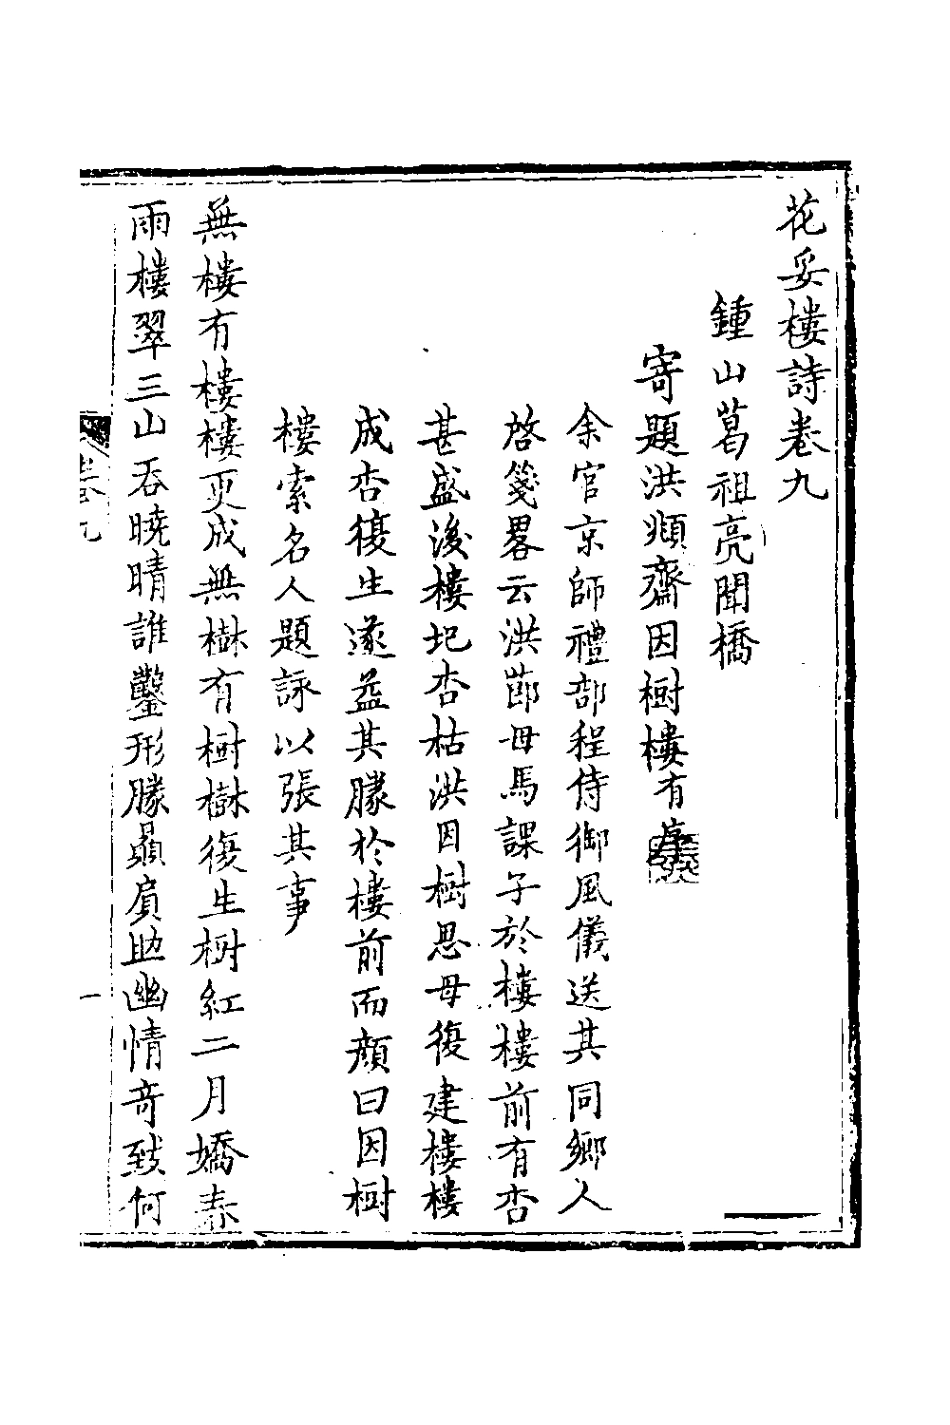 花妥樓詩卷九
鍾山葛祖亮聞橋
寄題洪㴋齋因樹樓有序
余官京師禮部程侍御風儀送其同鄉人
啓箋畧云洪節母馬課子於樓樓前有杏
甚盛後樓圮杏枯洪因樹思母復建樓樓
成杏復生遂益其勝於樓前而顏曰因樹
樓索名人題詠以張其事
無樓有樓樓更成無樹有樹樹復生樹紅二月嬌春
雨樓翠三山吞曉晴誰鑿形勝贔屓助幽情奇致何
卷九
一